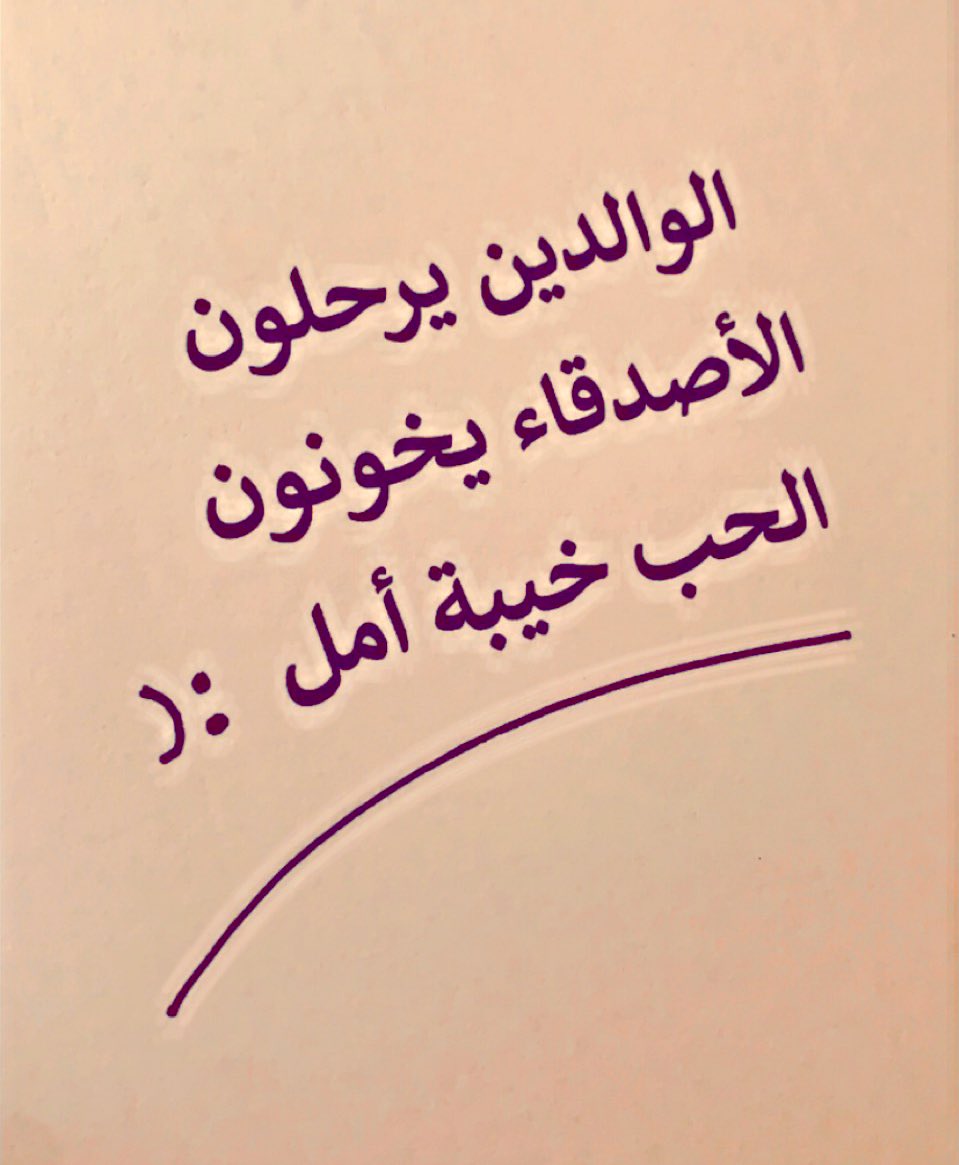 الوالدين يرحلون
الأصدقاء يخونون
الحب خيبة أمل :(